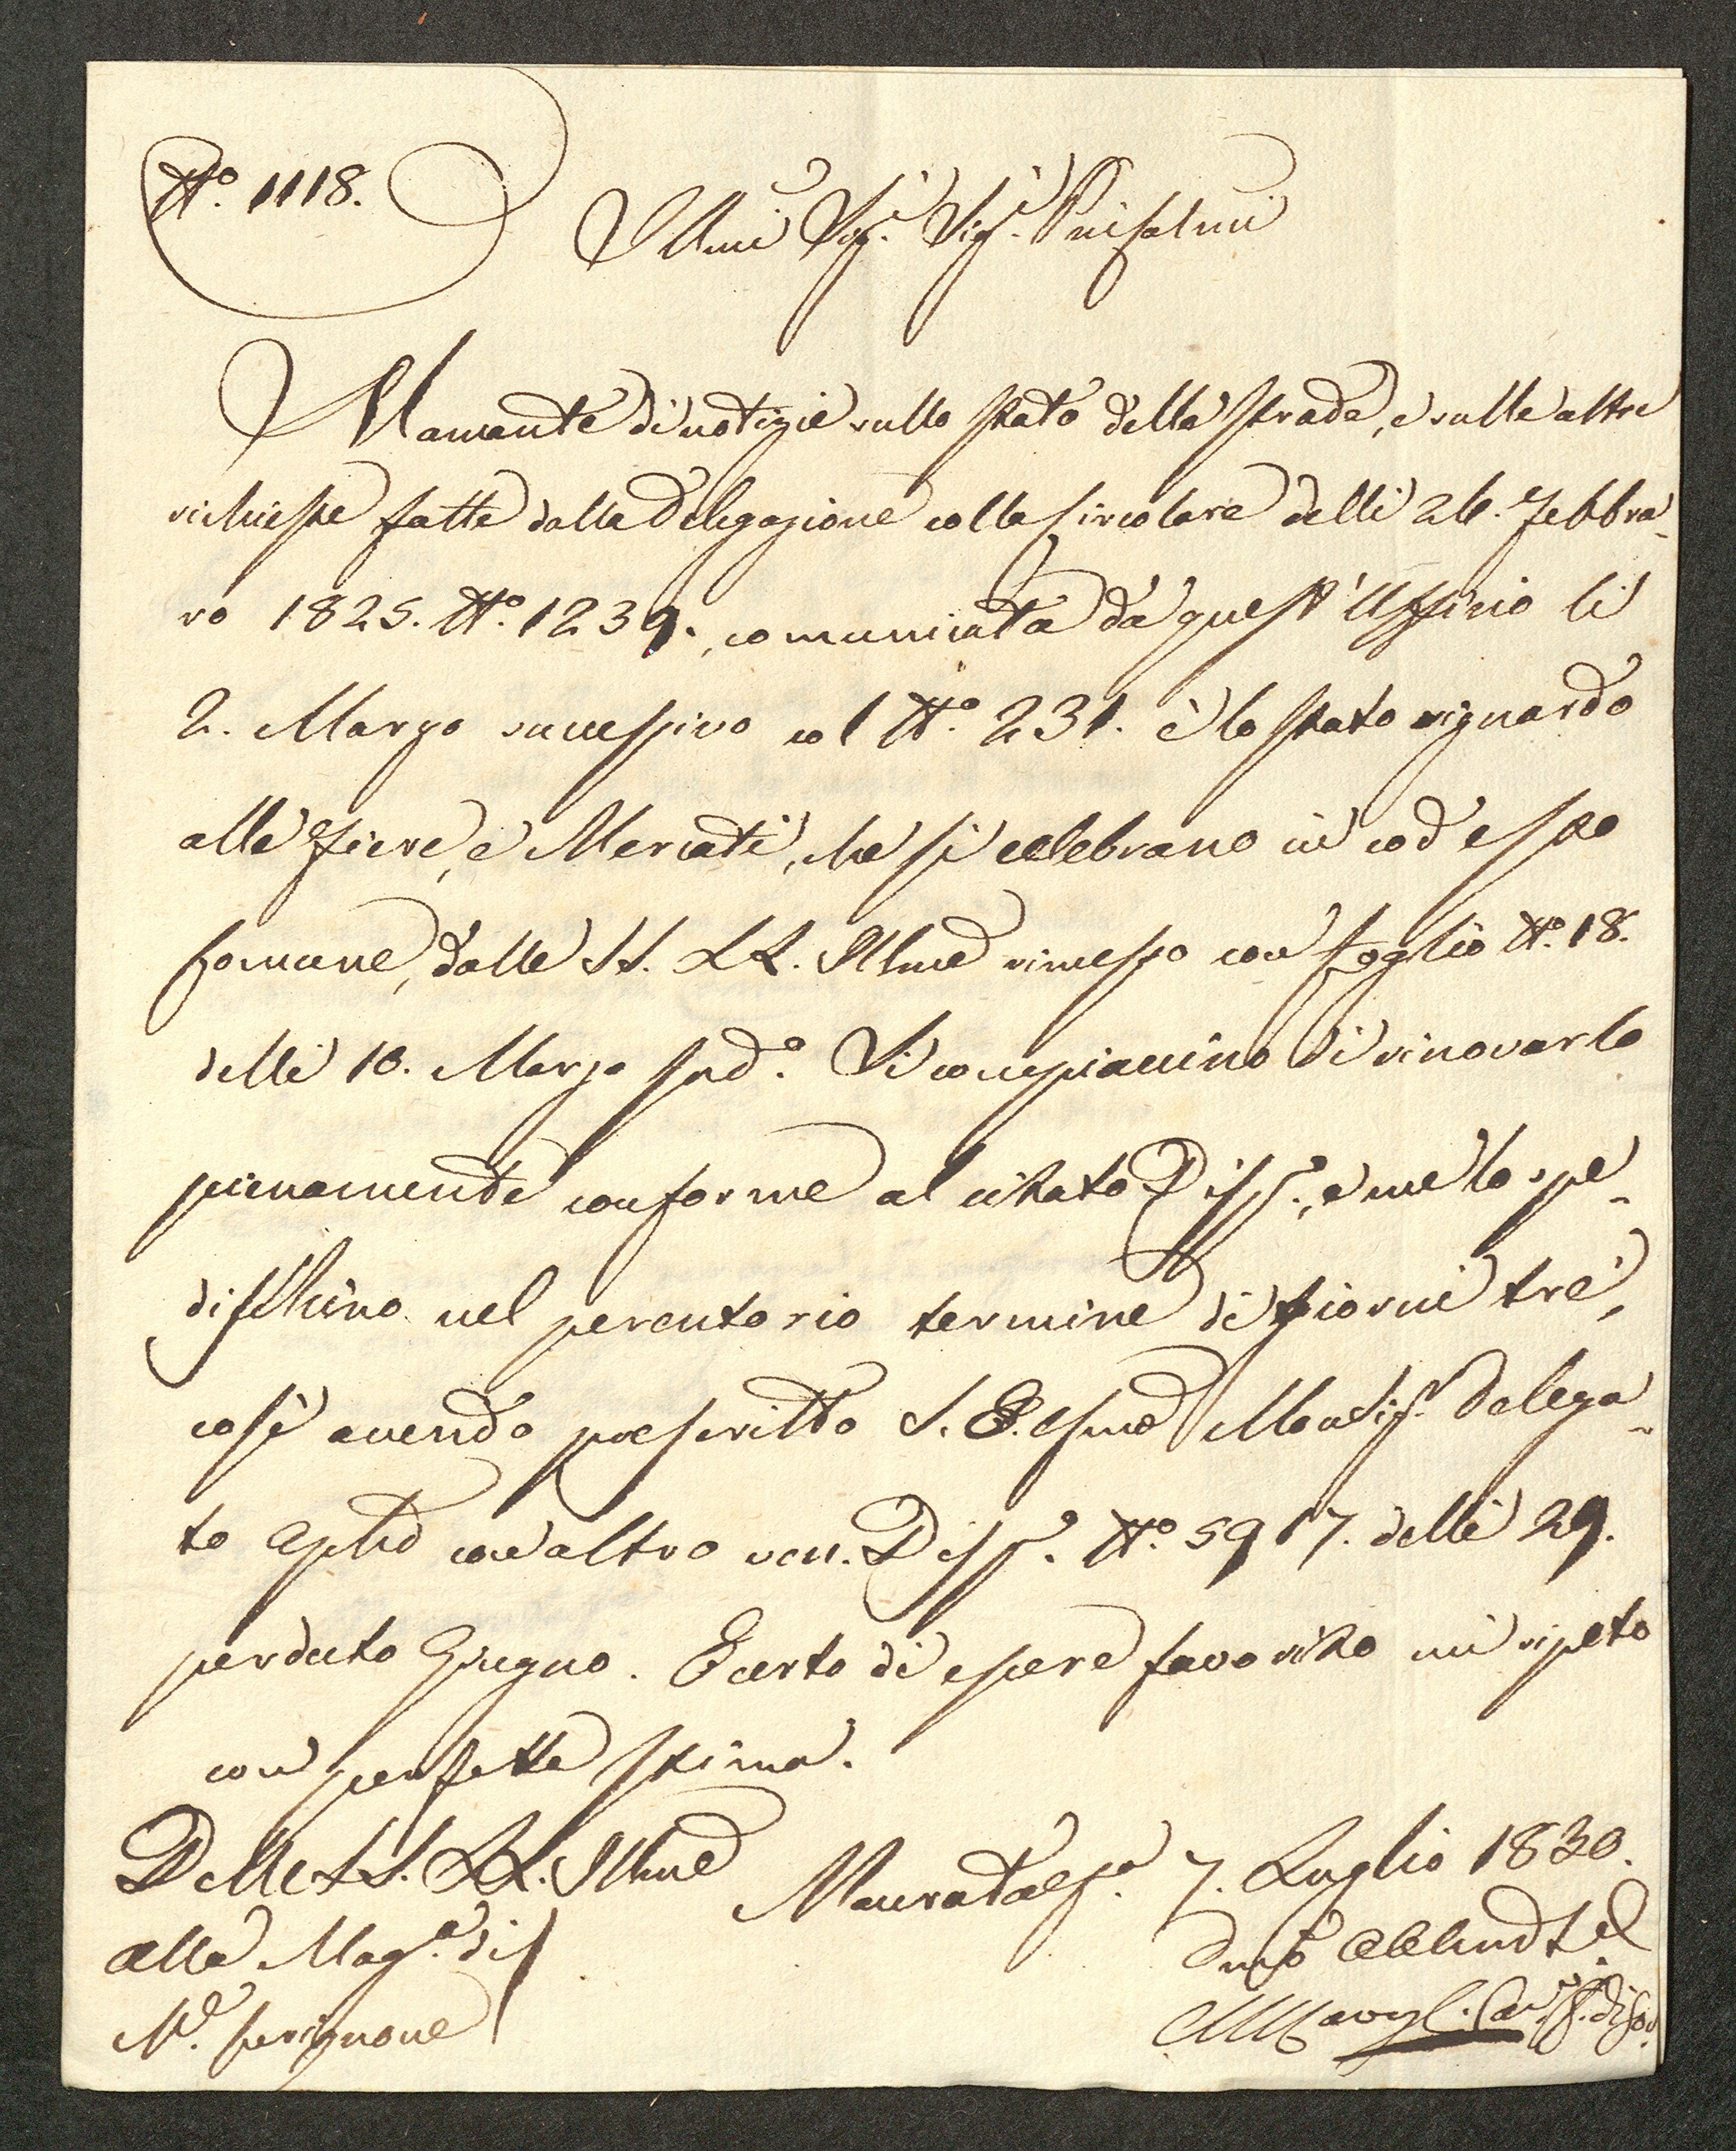 N.º 1118.
Illmi Sig.i Sig.i P̃ni Colmi
Mancante di notizie sullo stato della strada, e sulle altre
richieste fatte dalla Delegazione colla Circolare delli 26. Febbra-
ro 1825. N.º 1239., comunicata da quest'Uffizio li
2. Marzo successivo col N.º 231. è lo stato riguardo
alle Fiere, e Mercati, che si celebrano in codesta
Comune, dalle SS. LL. Illme rimesso con foglio N.º 18.
delli 10. Marzo sud.º Si compiaccino di rinovarlo
pienamente conforme al citato Disp.º, e me lo spe-
dischino nel perentorio termine di giorni tre,
così avendo prescritto S. E. Rma Monsig.r Delega-
to Aplico con altro ven. Disp.º N.º 5917. delli 29.
perduto Giugno. E certo di essere favorito mi ripeto
con perfetta stima.
Delle SS. LL. Illme
Macerata 7. Luglio 1830.
Alla Mag.a di
M.e Cerignone